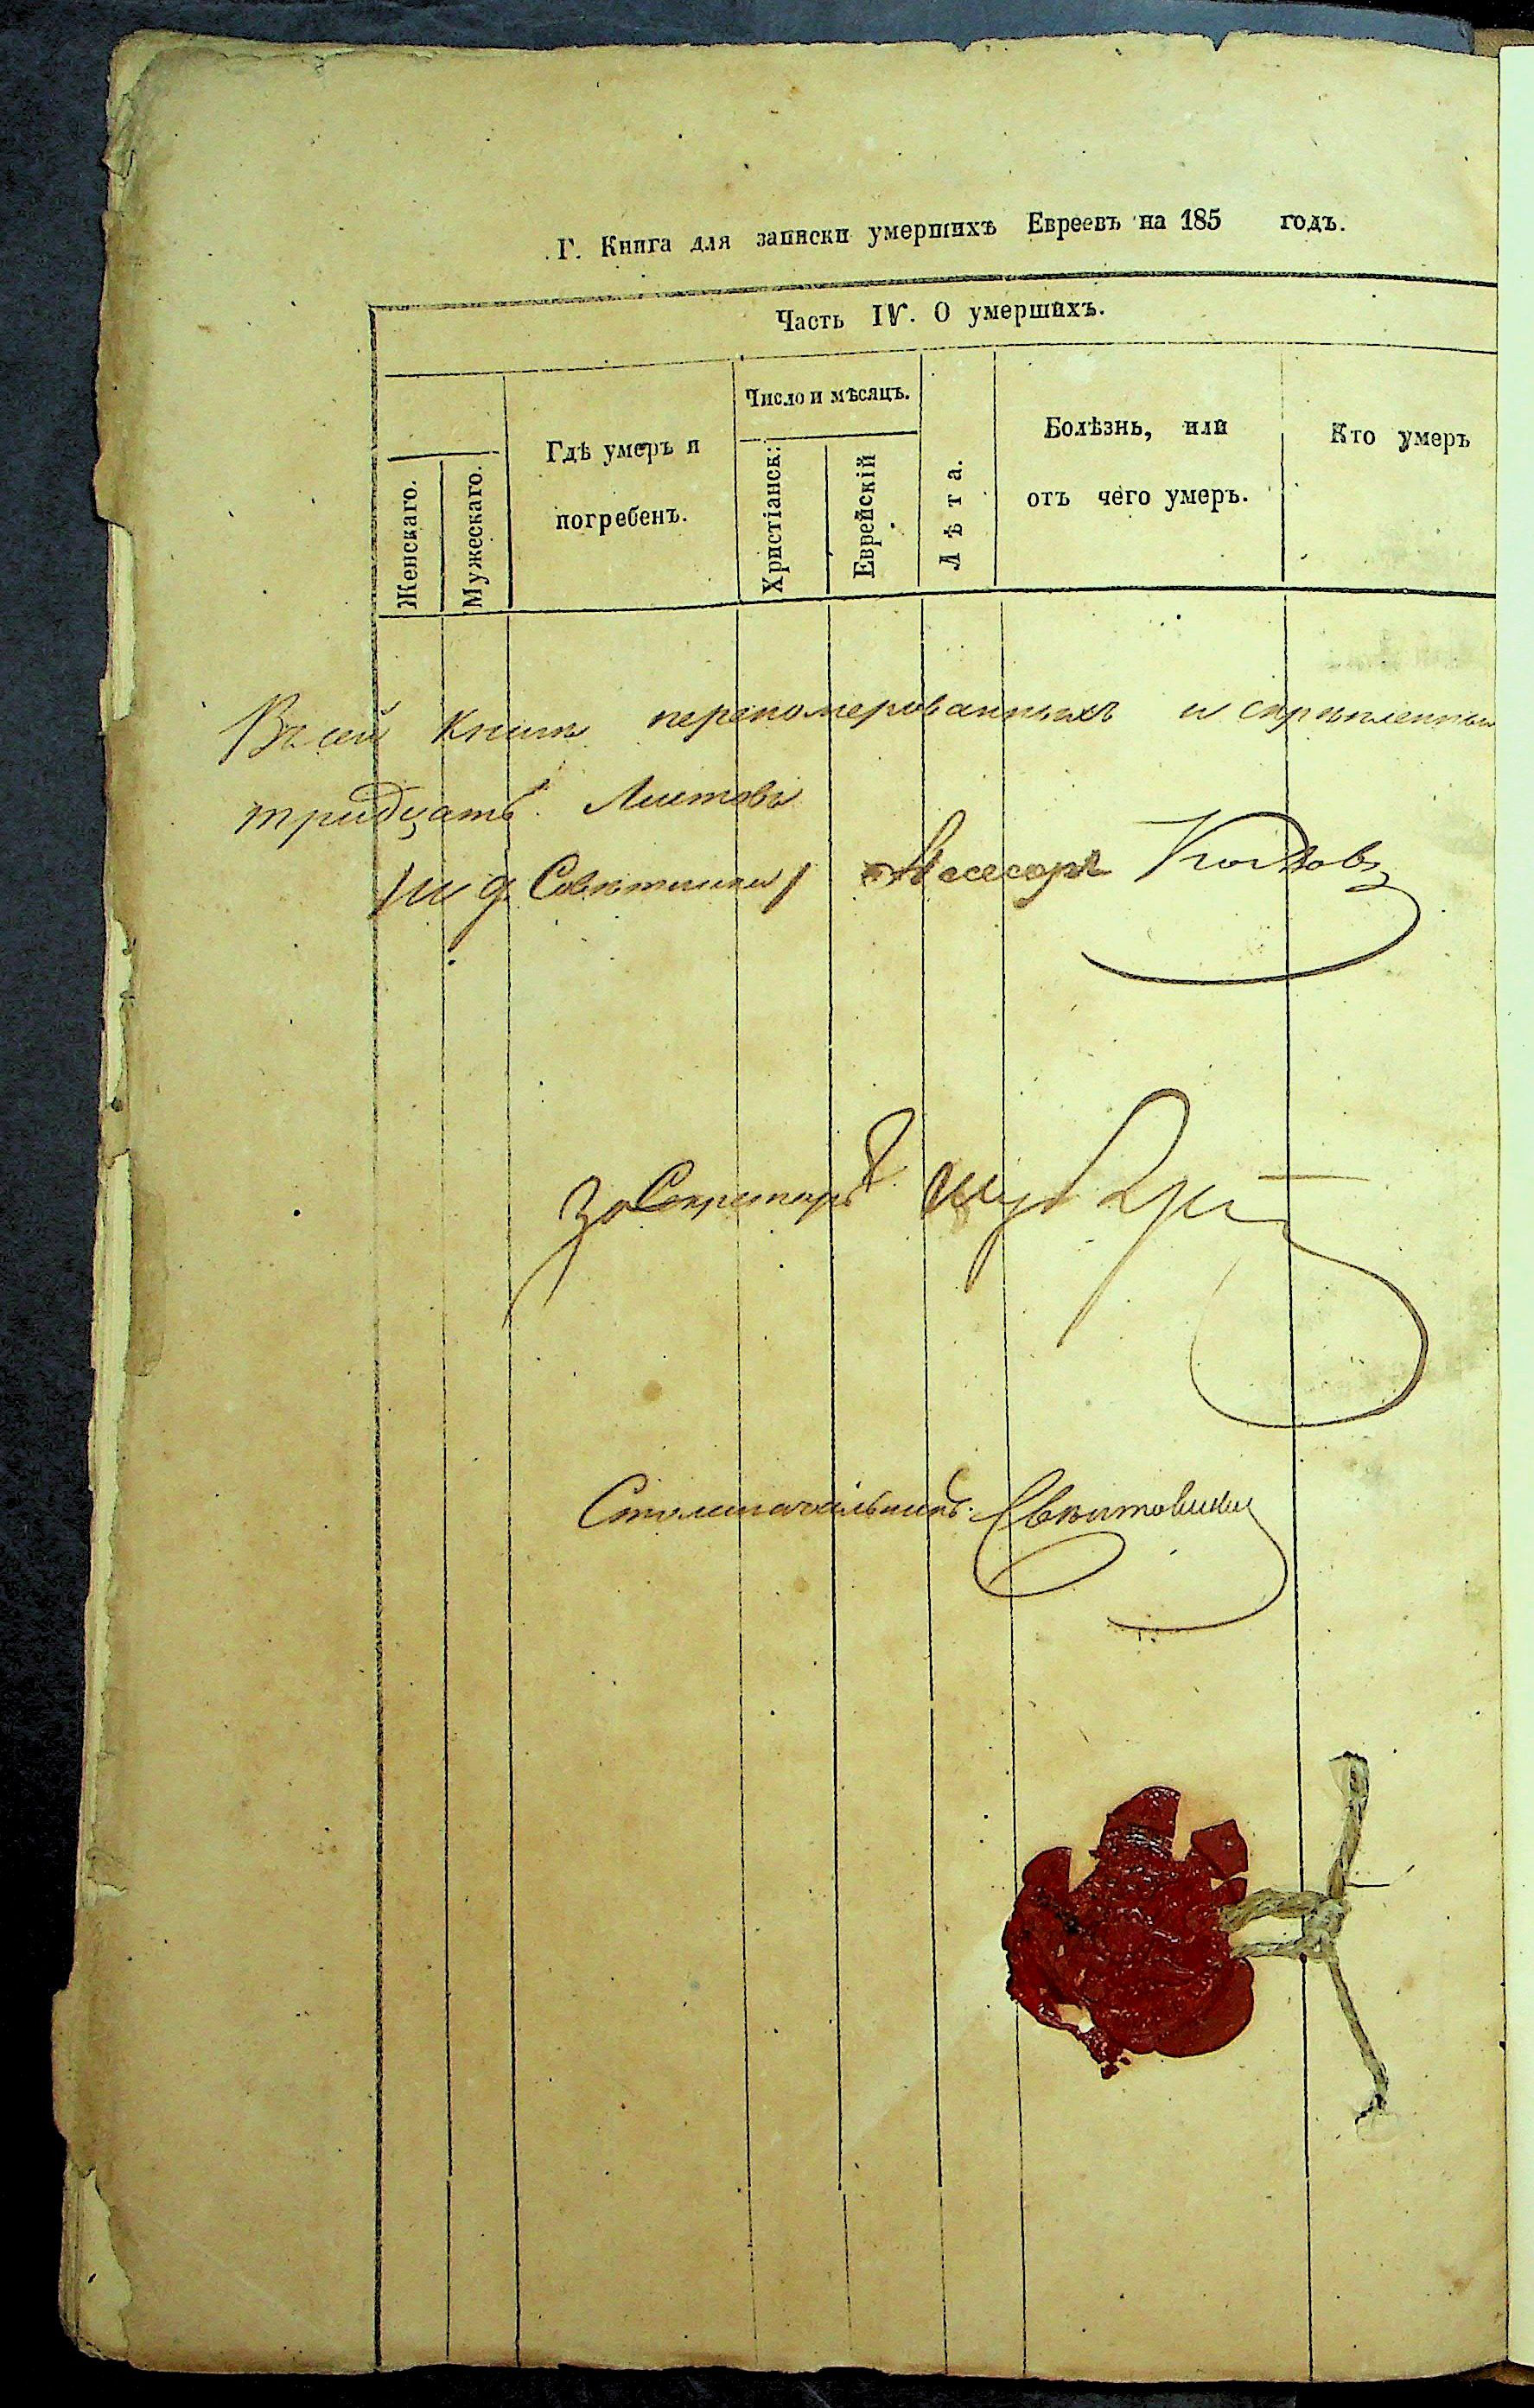 Г. Книга для записки умершихъ Евреевъ на 185 годъ.
Часть IV. О умершихъ.
Женскаго.
Мужескаго.
Гдѣ умеръ и
погребенъ.
Число и мѣсяцъ.
Христіанск:
Еврейскій
Лѣта.
Болѣзнь, или
отъ чего умеръ.
Кто умеръ
Въ сей книги перономерованныхъ и скрѣпленны
тридцать Листовъ
И д. Совѣтника Ассесоръ
За Секретаря
Столоначальникъ